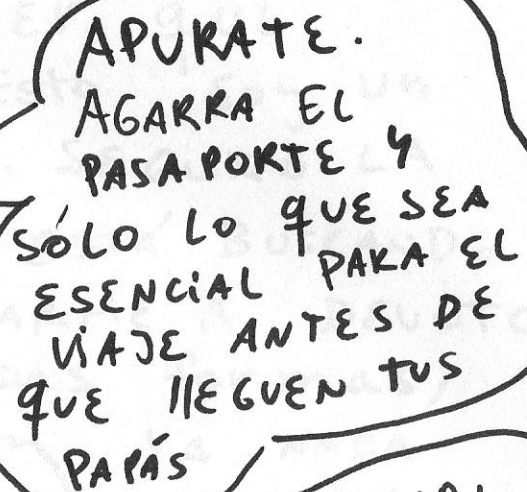 APURATE.
AGARRA EL
PASAPORTE Y
SÓLO LO QUE SEA
ESENCIAL PARA EL
VIAJE ANTES DE
QUE LLEGUEN TUS
PAPÁS